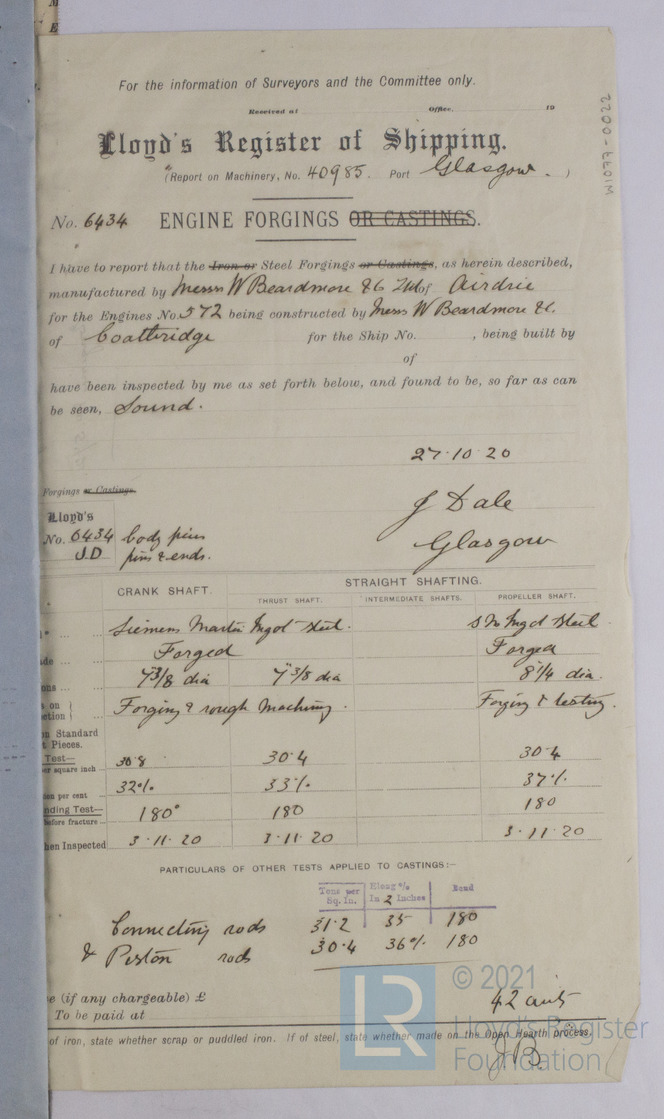 For the information of Surveyors and the Committee only.
Received at Office, 19
Lloyd's Register of Shipping.
(Report on Machinery, No. 40985. Port Glasgow. )
W1077-0022
No. 6434 ENGINE FORGINGS OR CASTINGS.
I have to report that the Iron or Steel Forgings or Castings, as herein described,
manufactured by Messrs W Beardmore & Co Ltd of Airdrie
for the Engines No. 572 being constructed by Messrs W Beardmore & Co.
of Coatbridge for the Ship No. , being built by
of
have been inspected by me as set forth below, and found to be, so far as can
be seen, Sound.
27.10.20
Forgings or Castings.
J Dale
Glasgow
Lloyd's
No. 6434 body pins
J.D pins & ends.
CRANK SHAFT. STRAIGHT SHAFTING.
THRUST SHAFT. INTERMEDIATE SHAFTS. PROPELLER SHAFT.
Siemens Martin Ingot steel. S M Ingot Steel
Forged Forged
7 3/8 dia 7 3/8 dia 8 1/4 dia.
Forging & rough Machining. Forging & testing.
Standard
Pieces.
Test— 30.8 30.4 30.4
square inch
per cent 32% 33% 37%
ding Test— 180° 180 180
before fracture
hen Inspected 3.11.20 3.11.20 3.11.20
PARTICULARS OF OTHER TESTS APPLIED TO CASTINGS:-
Tons per Sq. In. Elong % In 2 Inches Bend
Connecting rods 31.2 35 180
& Piston rods 30.4 36% 180
e (if any chargeable) £
42 cwts
To be paid at
of iron, state whether scrap or puddled iron. If of steel, state whether made on the Open Hearth process.
© 2021
LR
Lloyd's Register
Foundation